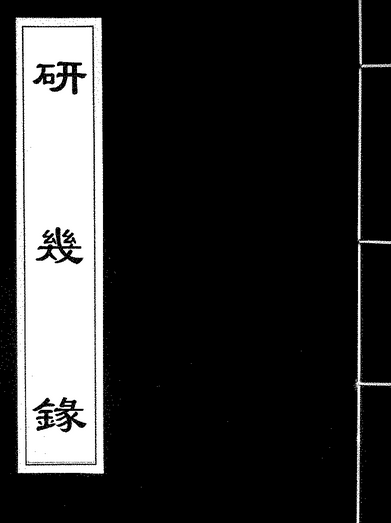 研幾錄